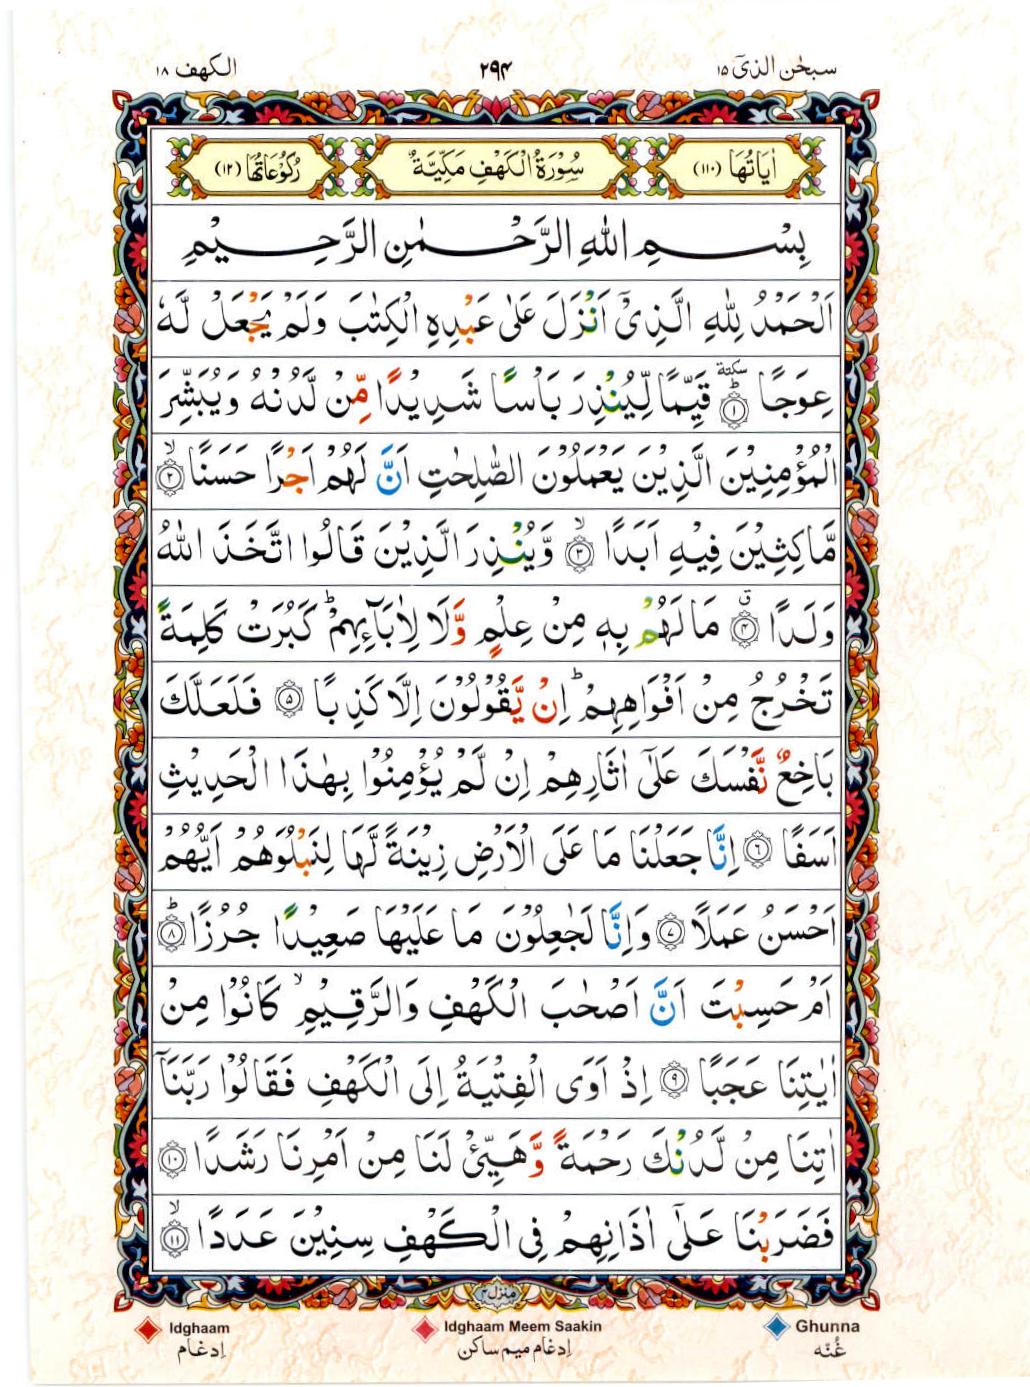 سبحٰن الذیٓ ۱۵
۲۹۴
الكهف ۱۸
اٰیَاتُهَا (۱۱۰)
سُوْرَةُ الْكَهْفِ مَكِّيَّةٌ
رُكُوْعَاتُهَا (۱۲)
بِسْمِ اللّٰهِ الرَّحْمٰنِ الرَّحِيْمِ
اَلْحَمْدُ لِلّٰهِ الَّذِىْۤ اَنْزَلَ عَلٰى عَبْدِهِ الْكِتٰبَ وَلَمْ يَجْعَلْ لَّهٗ
عِوَجًا ؕ سكتة ۱ قَيِّمًا لِّيُنْذِرَ بَاْسًا شَدِيْدًا مِّنْ لَّدُنْهُ وَيُبَشِّرَ
الْمُؤْمِنِيْنَ الَّذِيْنَ يَعْمَلُوْنَ الصّٰلِحٰتِ اَنَّ لَهُمْ اَجْرًا حَسَنًا ۙ ۲
مَّاكِثِيْنَ فِيْهِ اَبَدًا ۙ ۳ وَّيُنْذِرَ الَّذِيْنَ قَالُوا اتَّخَذَ اللّٰهُ
وَلَدًا ق ۴ مَا لَهُمْ بِهٖ مِنْ عِلْمٍ وَّلَا لِاٰبَآئِهِمْ ؕ كَبُرَتْ كَلِمَةً
تَخْرُجُ مِنْ اَفْوَاهِهِمْ ؕ اِنْ يَّقُوْلُوْنَ اِلَّا كَذِبًا ۵ فَلَعَلَّكَ
بَاخِعٌ نَّفْسَكَ عَلٰٓى اٰثَارِهِمْ اِنْ لَّمْ يُؤْمِنُوْا بِهٰذَا الْحَدِيْثِ
اَسَفًا ۶ اِنَّا جَعَلْنَا مَا عَلَى الْاَرْضِ زِيْنَةً لَّهَا لِنَبْلُوَهُمْ اَيُّهُمْ
اَحْسَنُ عَمَلًا ۷ وَاِنَّا لَجٰعِلُوْنَ مَا عَلَيْهَا صَعِيْدًا جُرُزًا ؕ ۸
اَمْ حَسِبْتَ اَنَّ اَصْحٰبَ الْكَهْفِ وَالرَّقِيْمِ ۙ كَانُوْا مِنْ
اٰيٰتِنَا عَجَبًا ۹ اِذْ اَوَى الْفِتْيَةُ اِلَى الْكَهْفِ فَقَالُوْا رَبَّنَاۤ
اٰتِنَا مِنْ لَّدُنْكَ رَحْمَةً وَّهَيِّئْ لَنَا مِنْ اَمْرِنَا رَشَدًا ۱۰
فَضَرَبْنَا عَلٰٓى اٰذَانِهِمْ فِى الْكَهْفِ سِنِيْنَ عَدَدًا ۙ ۱۱
منزل ۴
Idghaam
Idghaam Meem Saakin
Ghunna
اِدغام
اِدغام میم ساکن
غُنّه